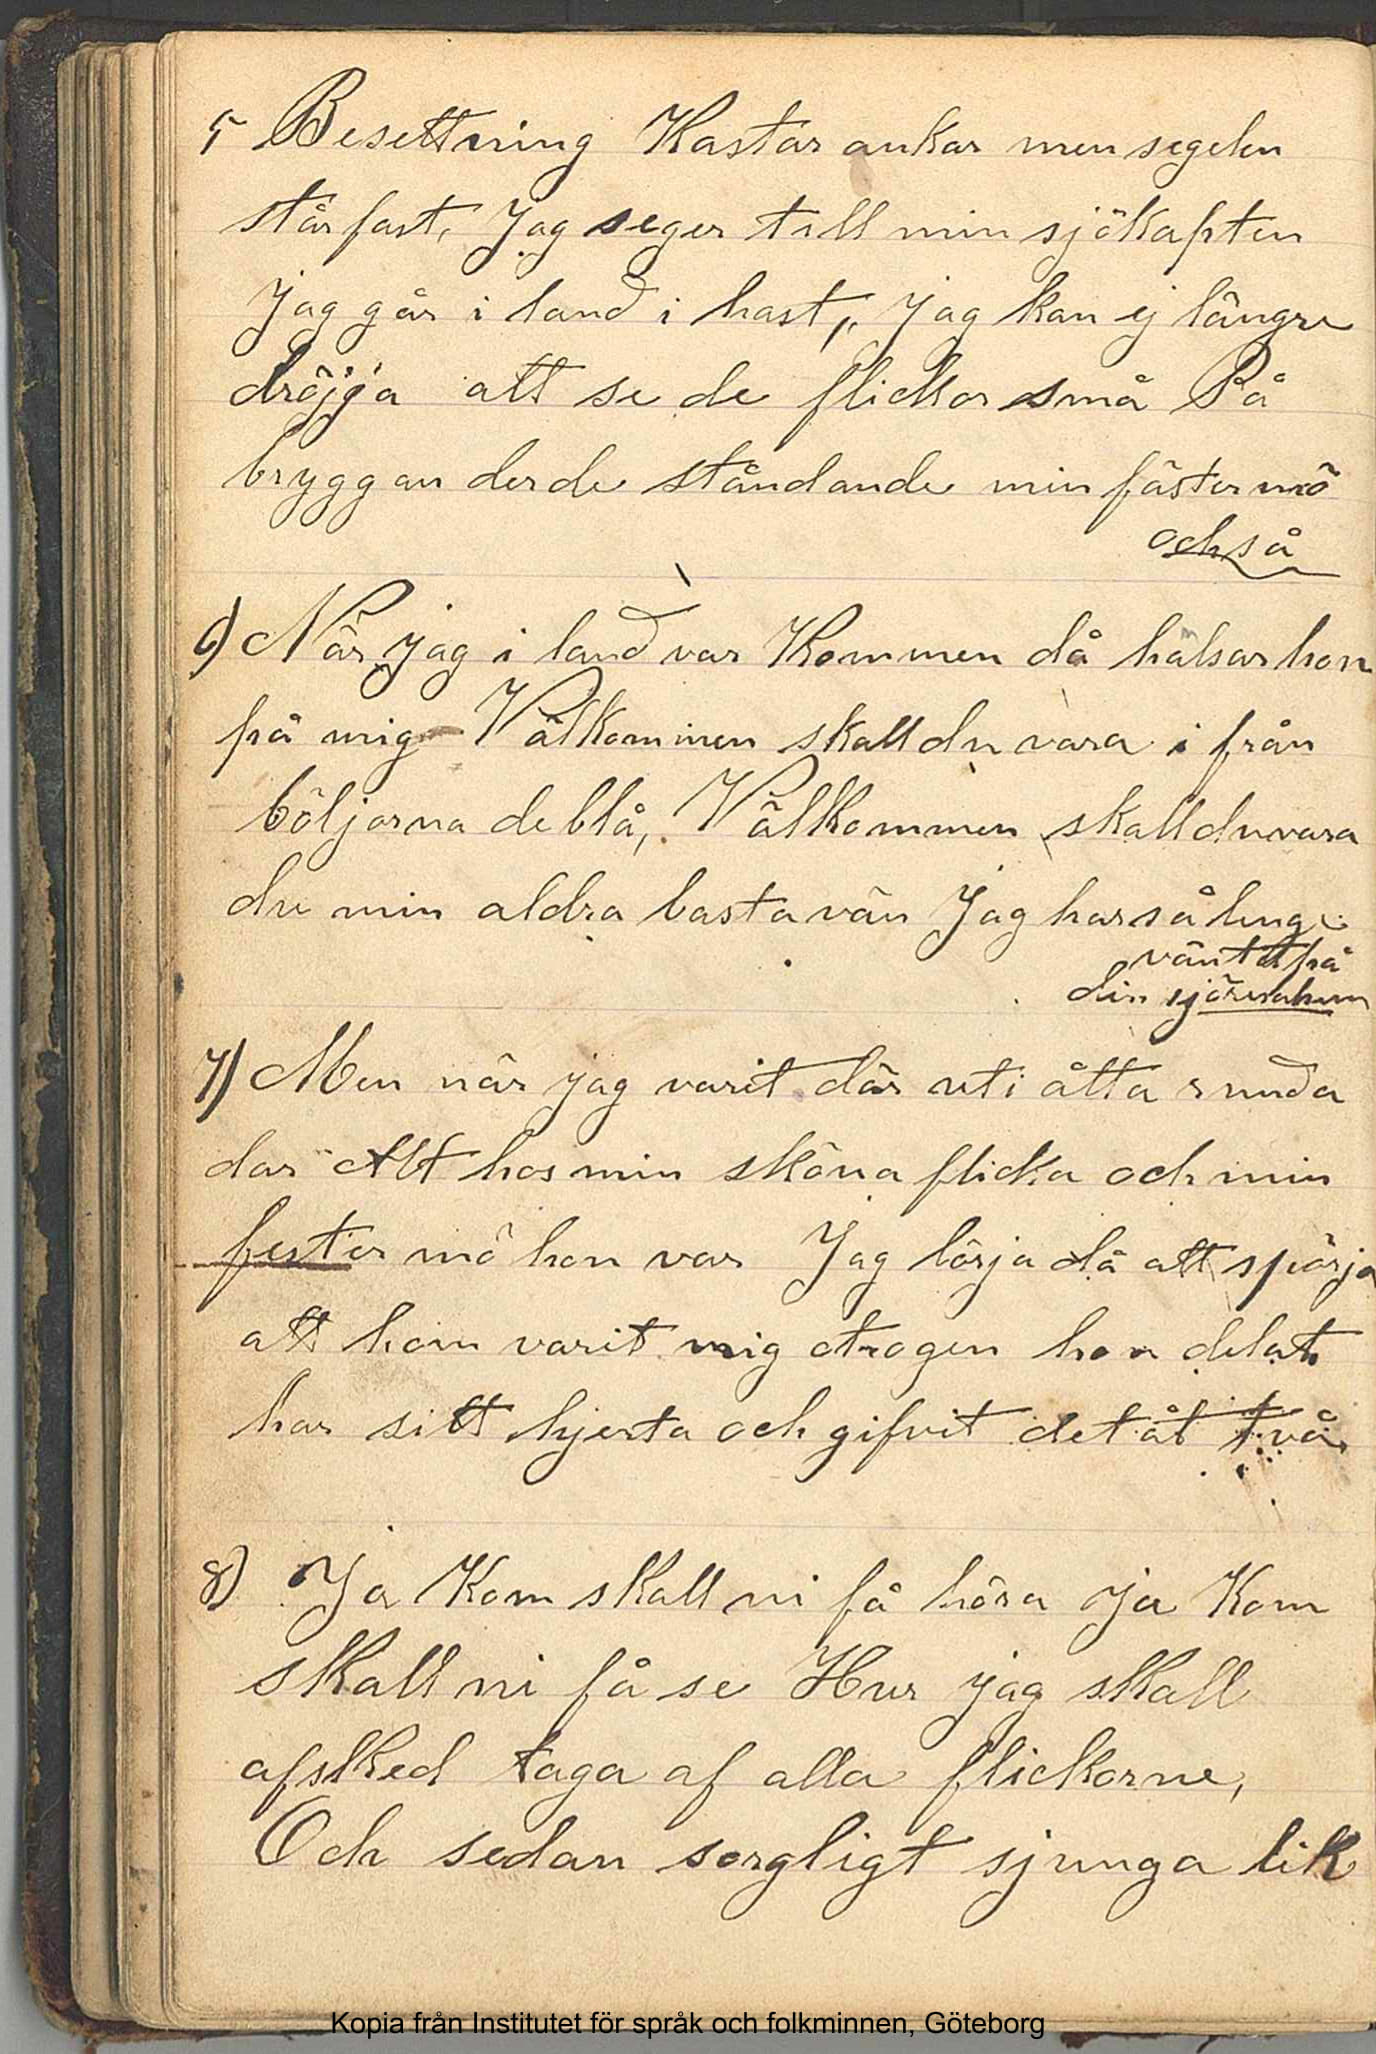 5 Besettning Kastar ankar men segelen
står fast, Jag seger till min sjökapten
Jag går i land i hast,, Jag kan ej längre
dröjja att se de flickor små På
bryggan der de ståndande min fästermö
också
6) När jag i land var Kommen då hälsar hon
på mig Välkommen skall du vara i från
böljorna de blå, Välkommen skall du vara
du min aldra basta vän Jag har så lenge
väntat på
din
7) Men när jag varit där uti åtta runda
dar Alt hos min sköna flicka och min
fester mö hon var Jag börja då att spörja
att hon varit mig otrogen hon delat
har sitt hjerta och gifvit det åt två
8) Ja Kom skall ni få höra ja Kom
skall ni få se Hur jag skall
afsked taga af alla flickorne,
Och sedan sorgligt sjunga lik
Kopia från Institutet för språk och folkminnen, Göteborg